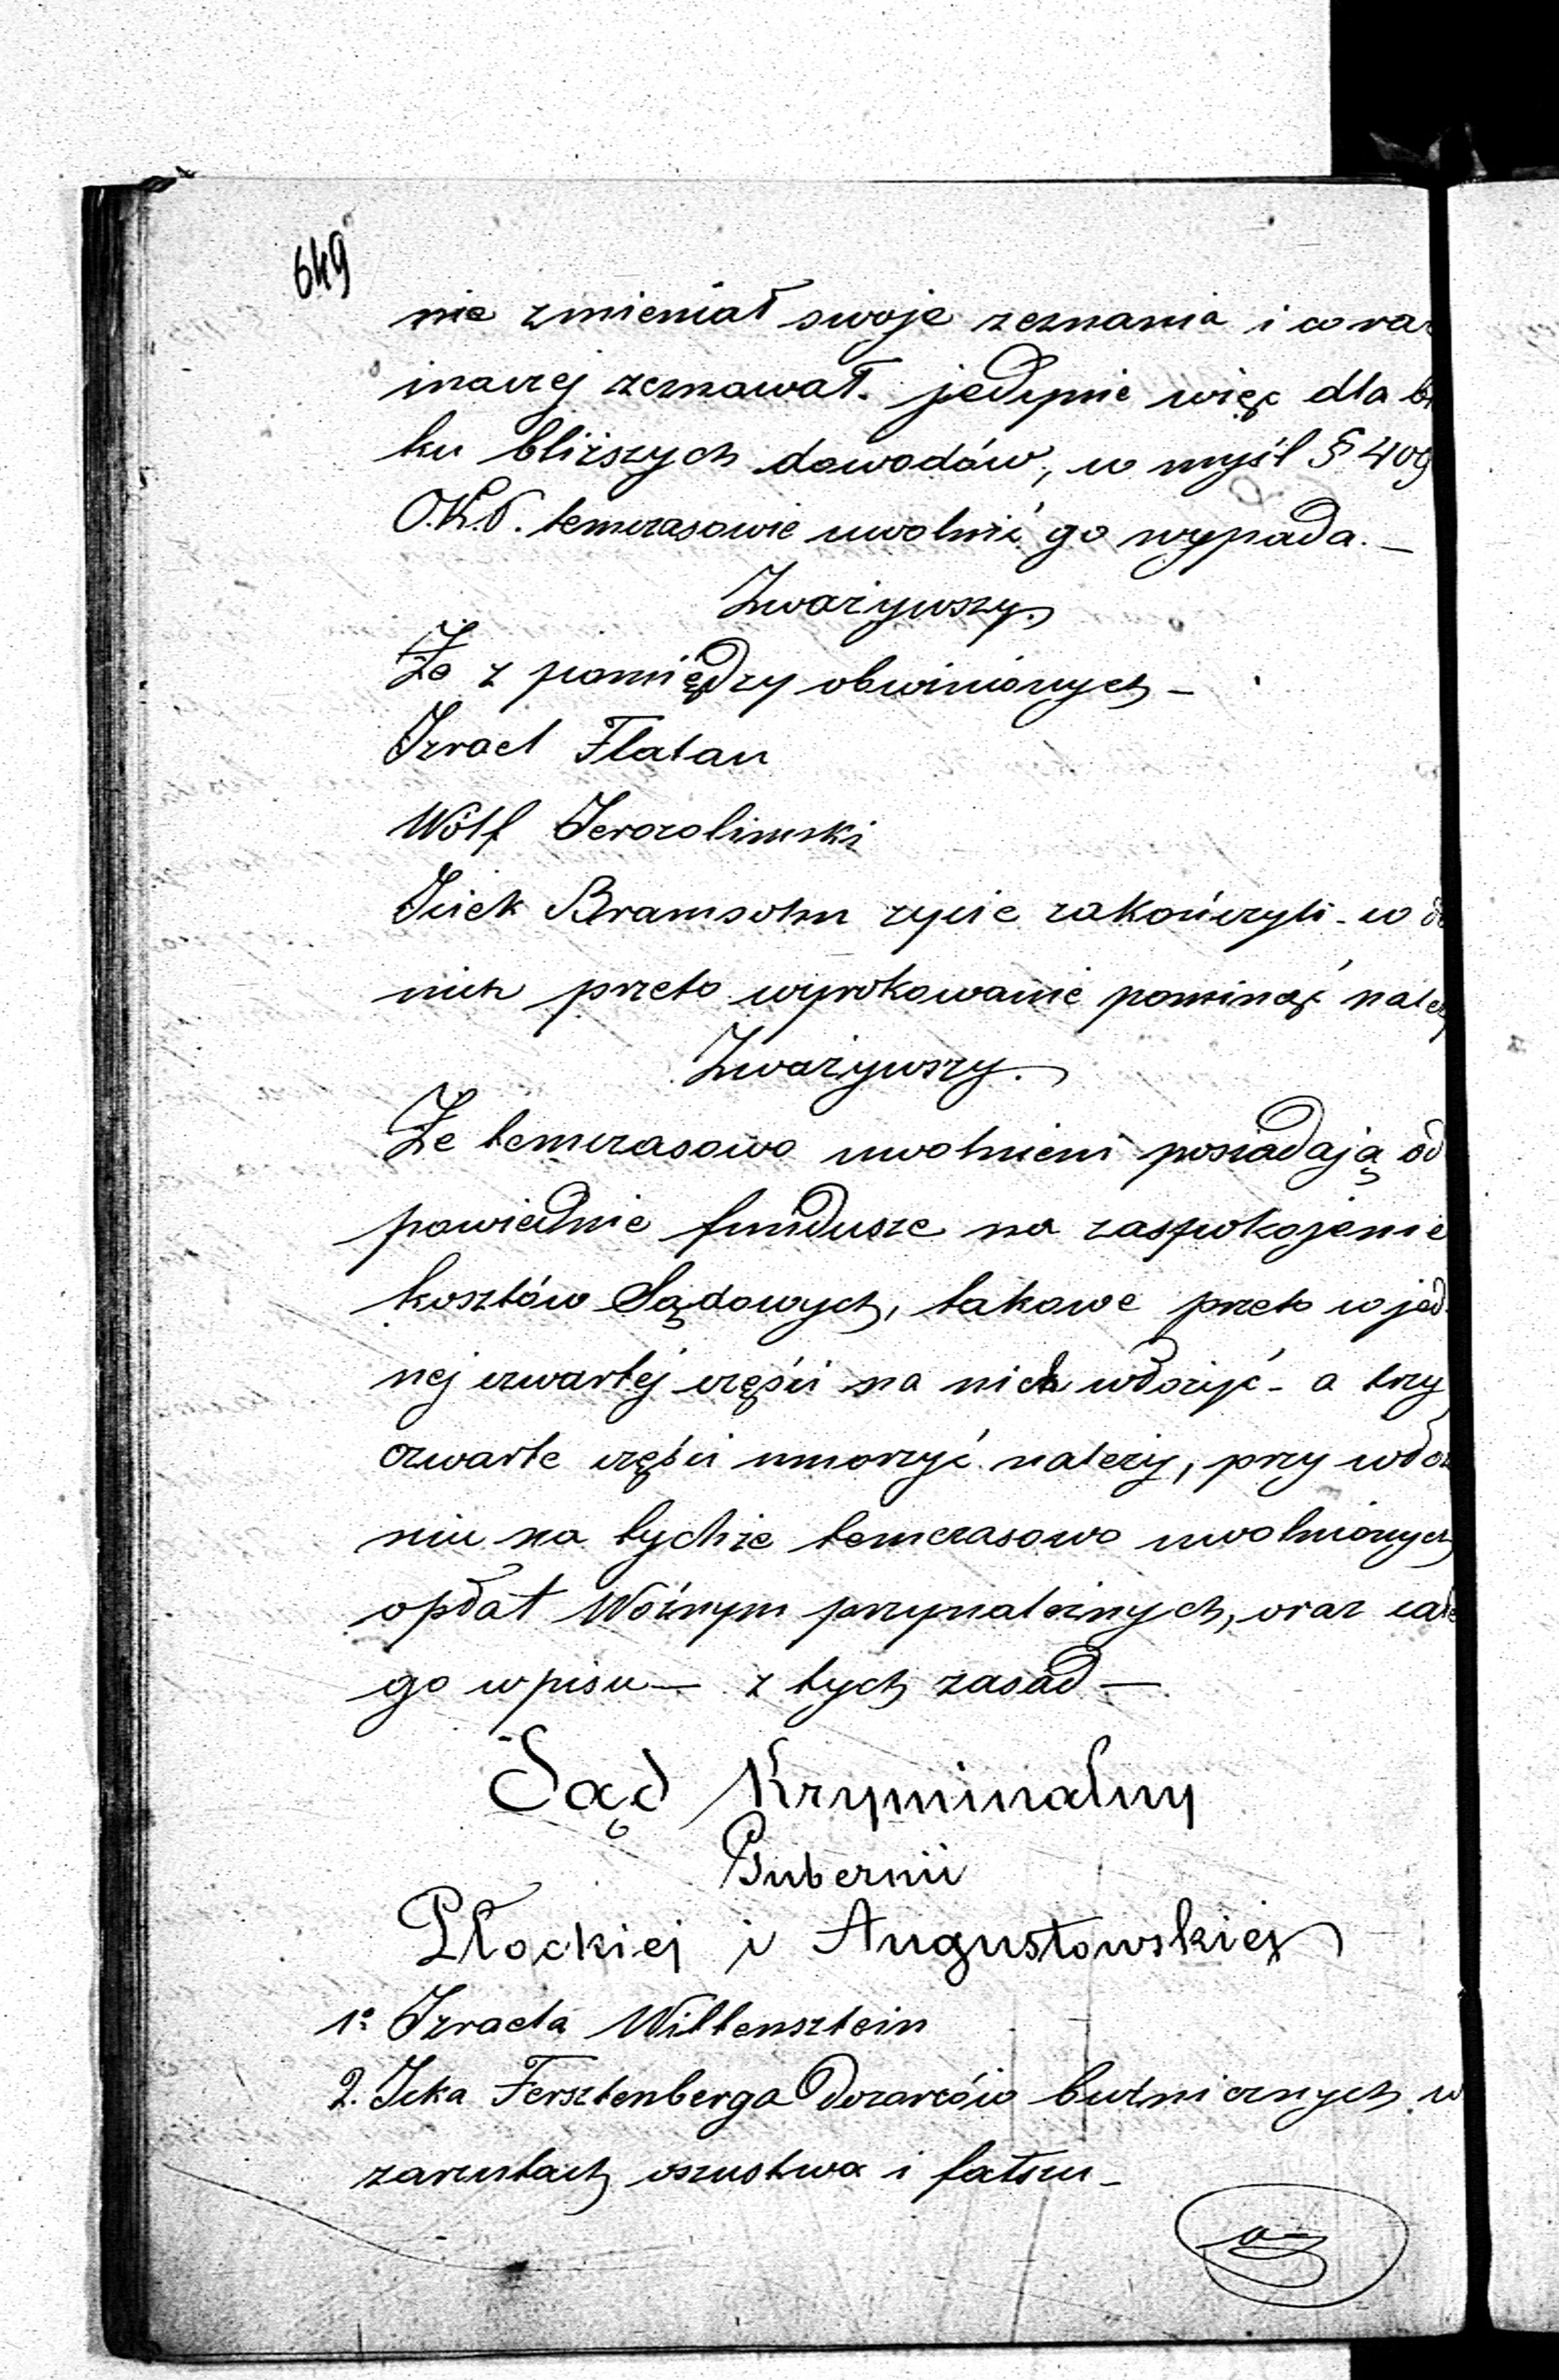 649
nie zmieniał swoje zeznania i co raz
inaczej zeznawał. jedynie więc dla br
ku bliższych dowodów, w myśl § 409
O.K.P. temczasowie uwolnić go wypada. —
Zważywszy.
Że z pomiędzy obwinionych —
Izrael Flatau
Wolf Jerozolimski
Icek Bramsohn życie zakończyli – w
nich przeto wyrokowanie pominąć należ
Zważywszy.
Że temczasowo uwolnieni posiadają od
powiednie fundusze na zaspokojenie
kosztów Sądowych, takowe przeto w jed
nej czwartej części na nich włożyć – a trzy
czwarte części umorzyć należy, przy włoż
niu na tychże temczasowo uwolnionych
opłat Woźnym przynależnych, oraz całe
go wpisu — z tych zasad —
Sąd Kryminalny
Gubernii
Płockiej i Augustowskiej
1º Izraela Willensztein
2. Icka Fersztenberga Dozorców bużnicznych w
zarzutach oszustwa i fałszu –